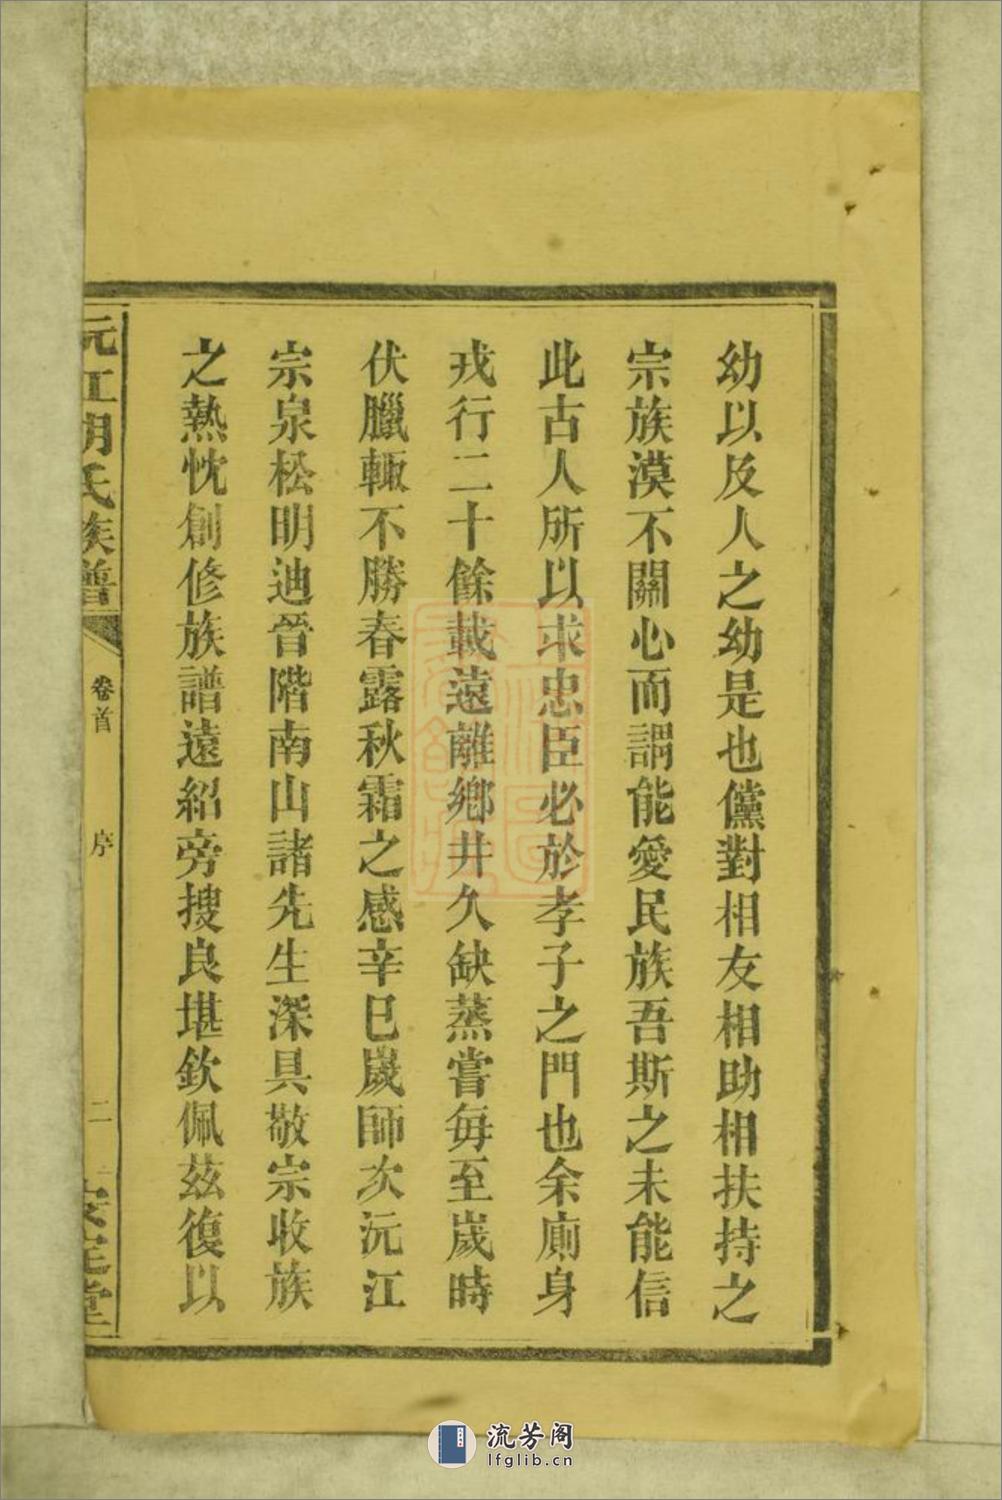 幼以及人之幼是也儻對相友相助相扶持之
宗族漠不關心而謂能愛民族吾斯之未能信
此古人所以求忠臣必於孝子之門也余廁身
戎行二十餘載遠離鄉井久缺蒸嘗每至歲時
伏臘輙不勝春露秋霜之感辛巳歲師次沅江
宗泉松明迪晉階南山諸先生深具敬宗收族
之熱忱創修族譜遠紹旁搜良堪欽佩茲復以
沅江胡氏族譜
卷首
序
二
安定堂
流芳阁
lfglib.cn